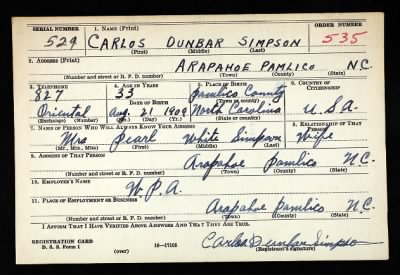 SERIAL NUMBER 1. NAME (Print) ORDER NUMBER
529 CARLOS DUNBAR SIMPSON 535
(First) (Middle) (Last)
2. ADDRESS (Print)
ARAPAHOE PAMLICO N.C.
(Number and street or R. F. D. number) (Town) (County) (State)
3. TELEPHONE 4. AGE IN YEARS 5. PLACE OF BIRTH 6. COUNTRY OF CITIZENSHIP
827 33 Pamlico County
DATE OF BIRTH (Town or county)
Oriental Aug. 21 1909 North Carolina U.S.A.
(Exchange) (Number) (Mo.) (Day) (Yr.) (State or country)
7. NAME OF PERSON WHO WILL ALWAYS KNOW YOUR ADDRESS 8. RELATIONSHIP OF THAT PERSON
Mrs Pearl White Simpson Wife
(Mr., Mrs., Miss) (First) (Middle) (Last)
9. ADDRESS OF THAT PERSON
Arapahoe Pamlico N.C.
(Number and street or R. F. D. number) (Town) (County) (State)
10. EMPLOYER'S NAME
W.P.A.
11. PLACE OF EMPLOYMENT OR BUSINESS
Arapahoe Pamlico N.C.
(Number and street or R. F. D. number) (Town) (County) (State)
I AFFIRM THAT I HAVE VERIFIED ABOVE ANSWERS AND THAT THEY ARE TRUE.
REGISTRATION CARD
D. S. S. Form 1 (over) 16—17105 Carlos Dunbar Simpson
(Registrant's signature)